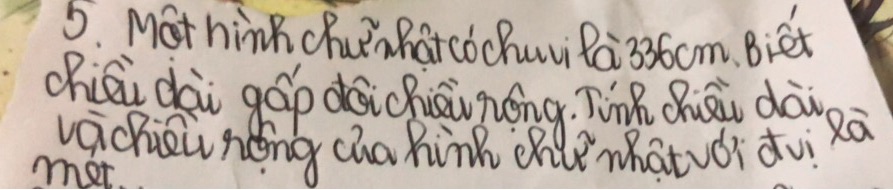 5. Một hình chữ nhật có chu vi là 336cm. Biết
chiều dài gấp đôi chiều rộng. Tính chiều dài
và chiều rộng của hình chữ nhật với đvị là
mét.